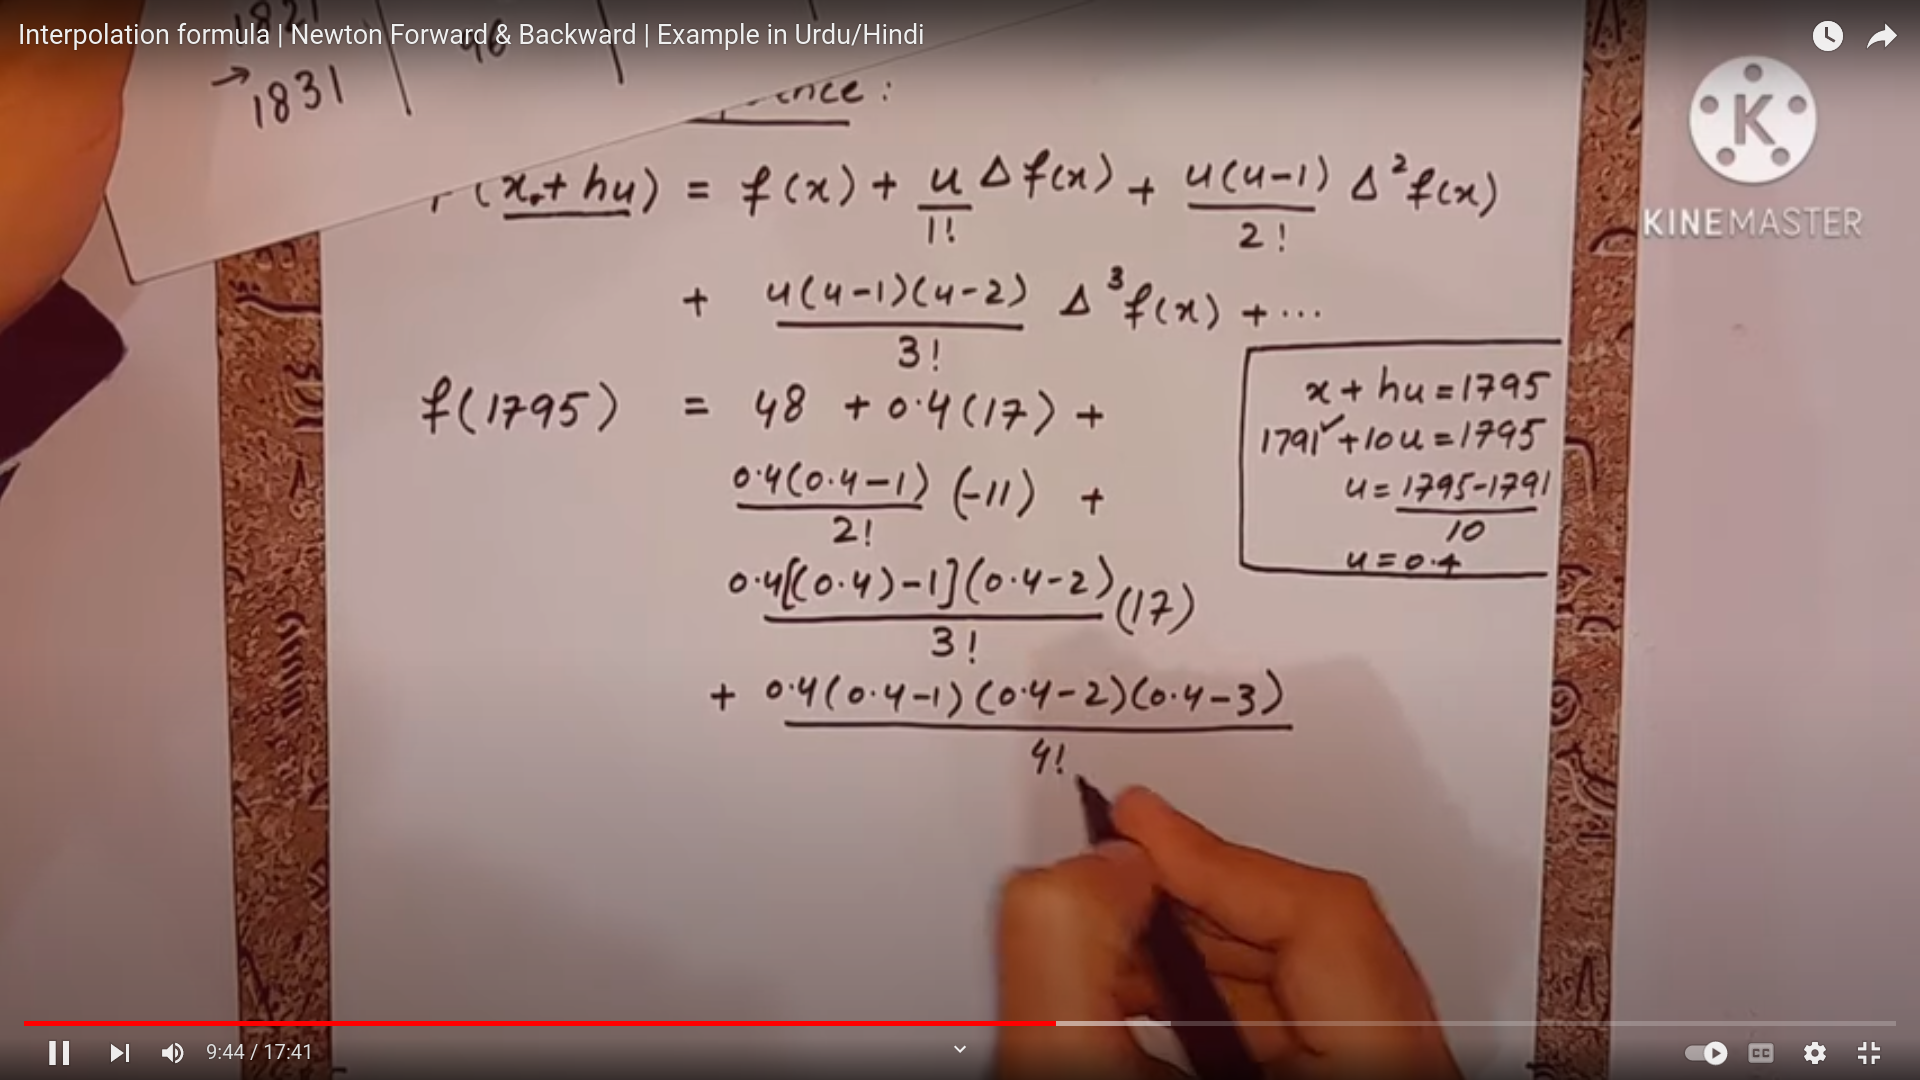 Interpolation formula | Newton Forward & Backward | Example in Urdu/Hindi
→ 1831
(x₀ + hu) = f(x) + u/1! Δf(x) + u(u-1)/2! Δ²f(x)
+ u(u-1)(u-2)/3! Δ³f(x) + ...
f(1795) = 48 + 0.4(17) +
0.4(0.4-1)/2! (-11) +
0.4[(0.4)-1](0.4-2)/3! (17)
+ 0.4(0.4-1)(0.4-2)(0.4-3)/4!
x + hu = 1795
1791✓ + 10u = 1795
u = 1795-1791/10
u = 0.4
K
KINEMASTER
9:44 / 17:41
CC